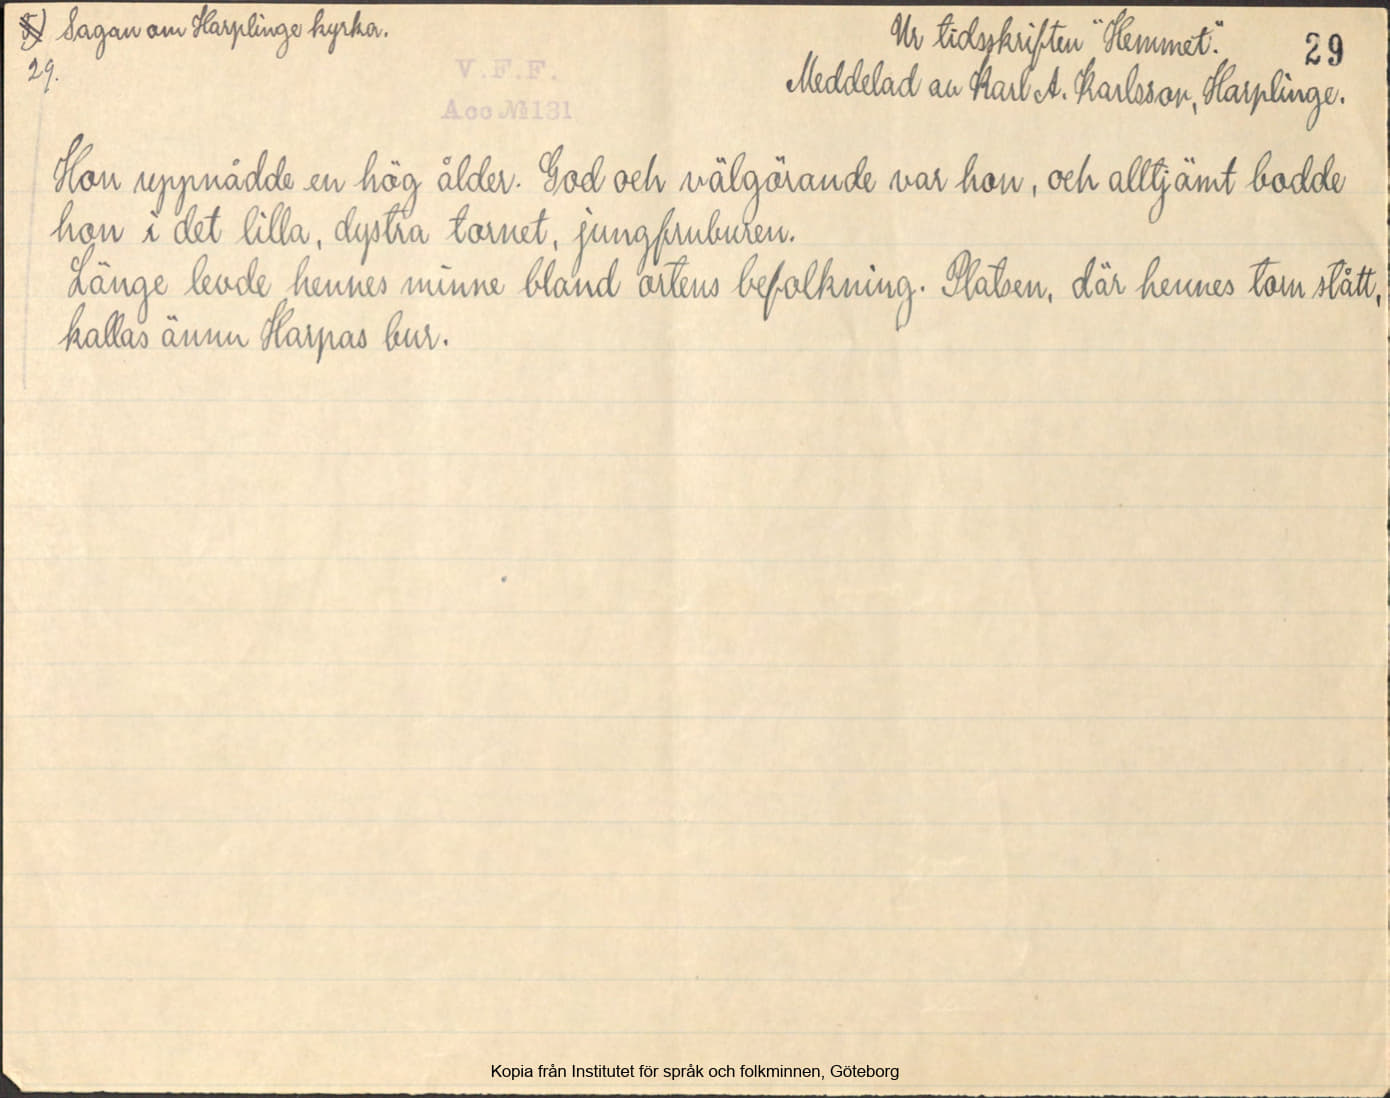 5) Sagan om Harplinge kyrka.
Ur tidsskriften "Hemmet".
29
29.
Meddelad av Karl A. Karlsson, Harplinge.
V.F.F.
Acc № 131
Hon uppnådde en hög ålder. God och välgörande var hon, och alltjämt bodde
hon i det lilla, dystra tornet, jungfruburen.
Länge levde hennes minne bland ortens befolkning. Platsen, där hennes torn stått,
kallas ännu Harpas bur.
Kopia från Institutet för språk och folkminnen, Göteborg